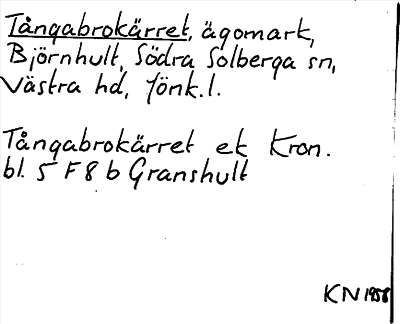 Tångabrokärret, ägomark,
Björnhult, Södra Solberga sn,
Västra hd, Jönk.l.
Tångabrokärret ek Kron.
bl. 5 F 8 b Granshult
KN 1958